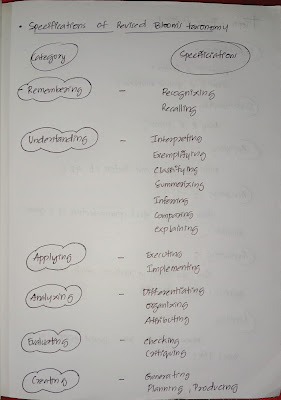 • Specifications of Revised Bloom's taxonomy
Category Specifications
Remembering – Recognizing
Recalling
Understanding – Interpreting
Exemplifying
Classifying
Summarizing
Inferring
Comparing
explaining
Applying – Executing
Implementing
Analyzing – Differentiating
Organizing
Attributing
Evaluating – checking
Critiquing
Creating – Generating
Planning, Producing